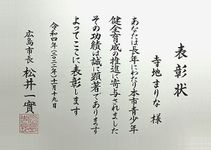 表彰状
寺地まりな 様
あなたは長年にわたり本市青少年
健全育成の推進に寄与されました
その功績は誠に顕著であります
よってここに表彰します
令和四年(二〇二二年)十一月十九日
広島市長 松井一實